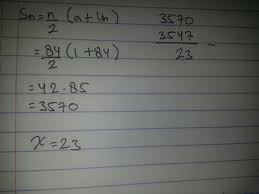 Sn = n/2 (a + Un)
= 84/2 (1 + 84)
= 42 . 85
= 3570
x = 23
3570
3547 -
23